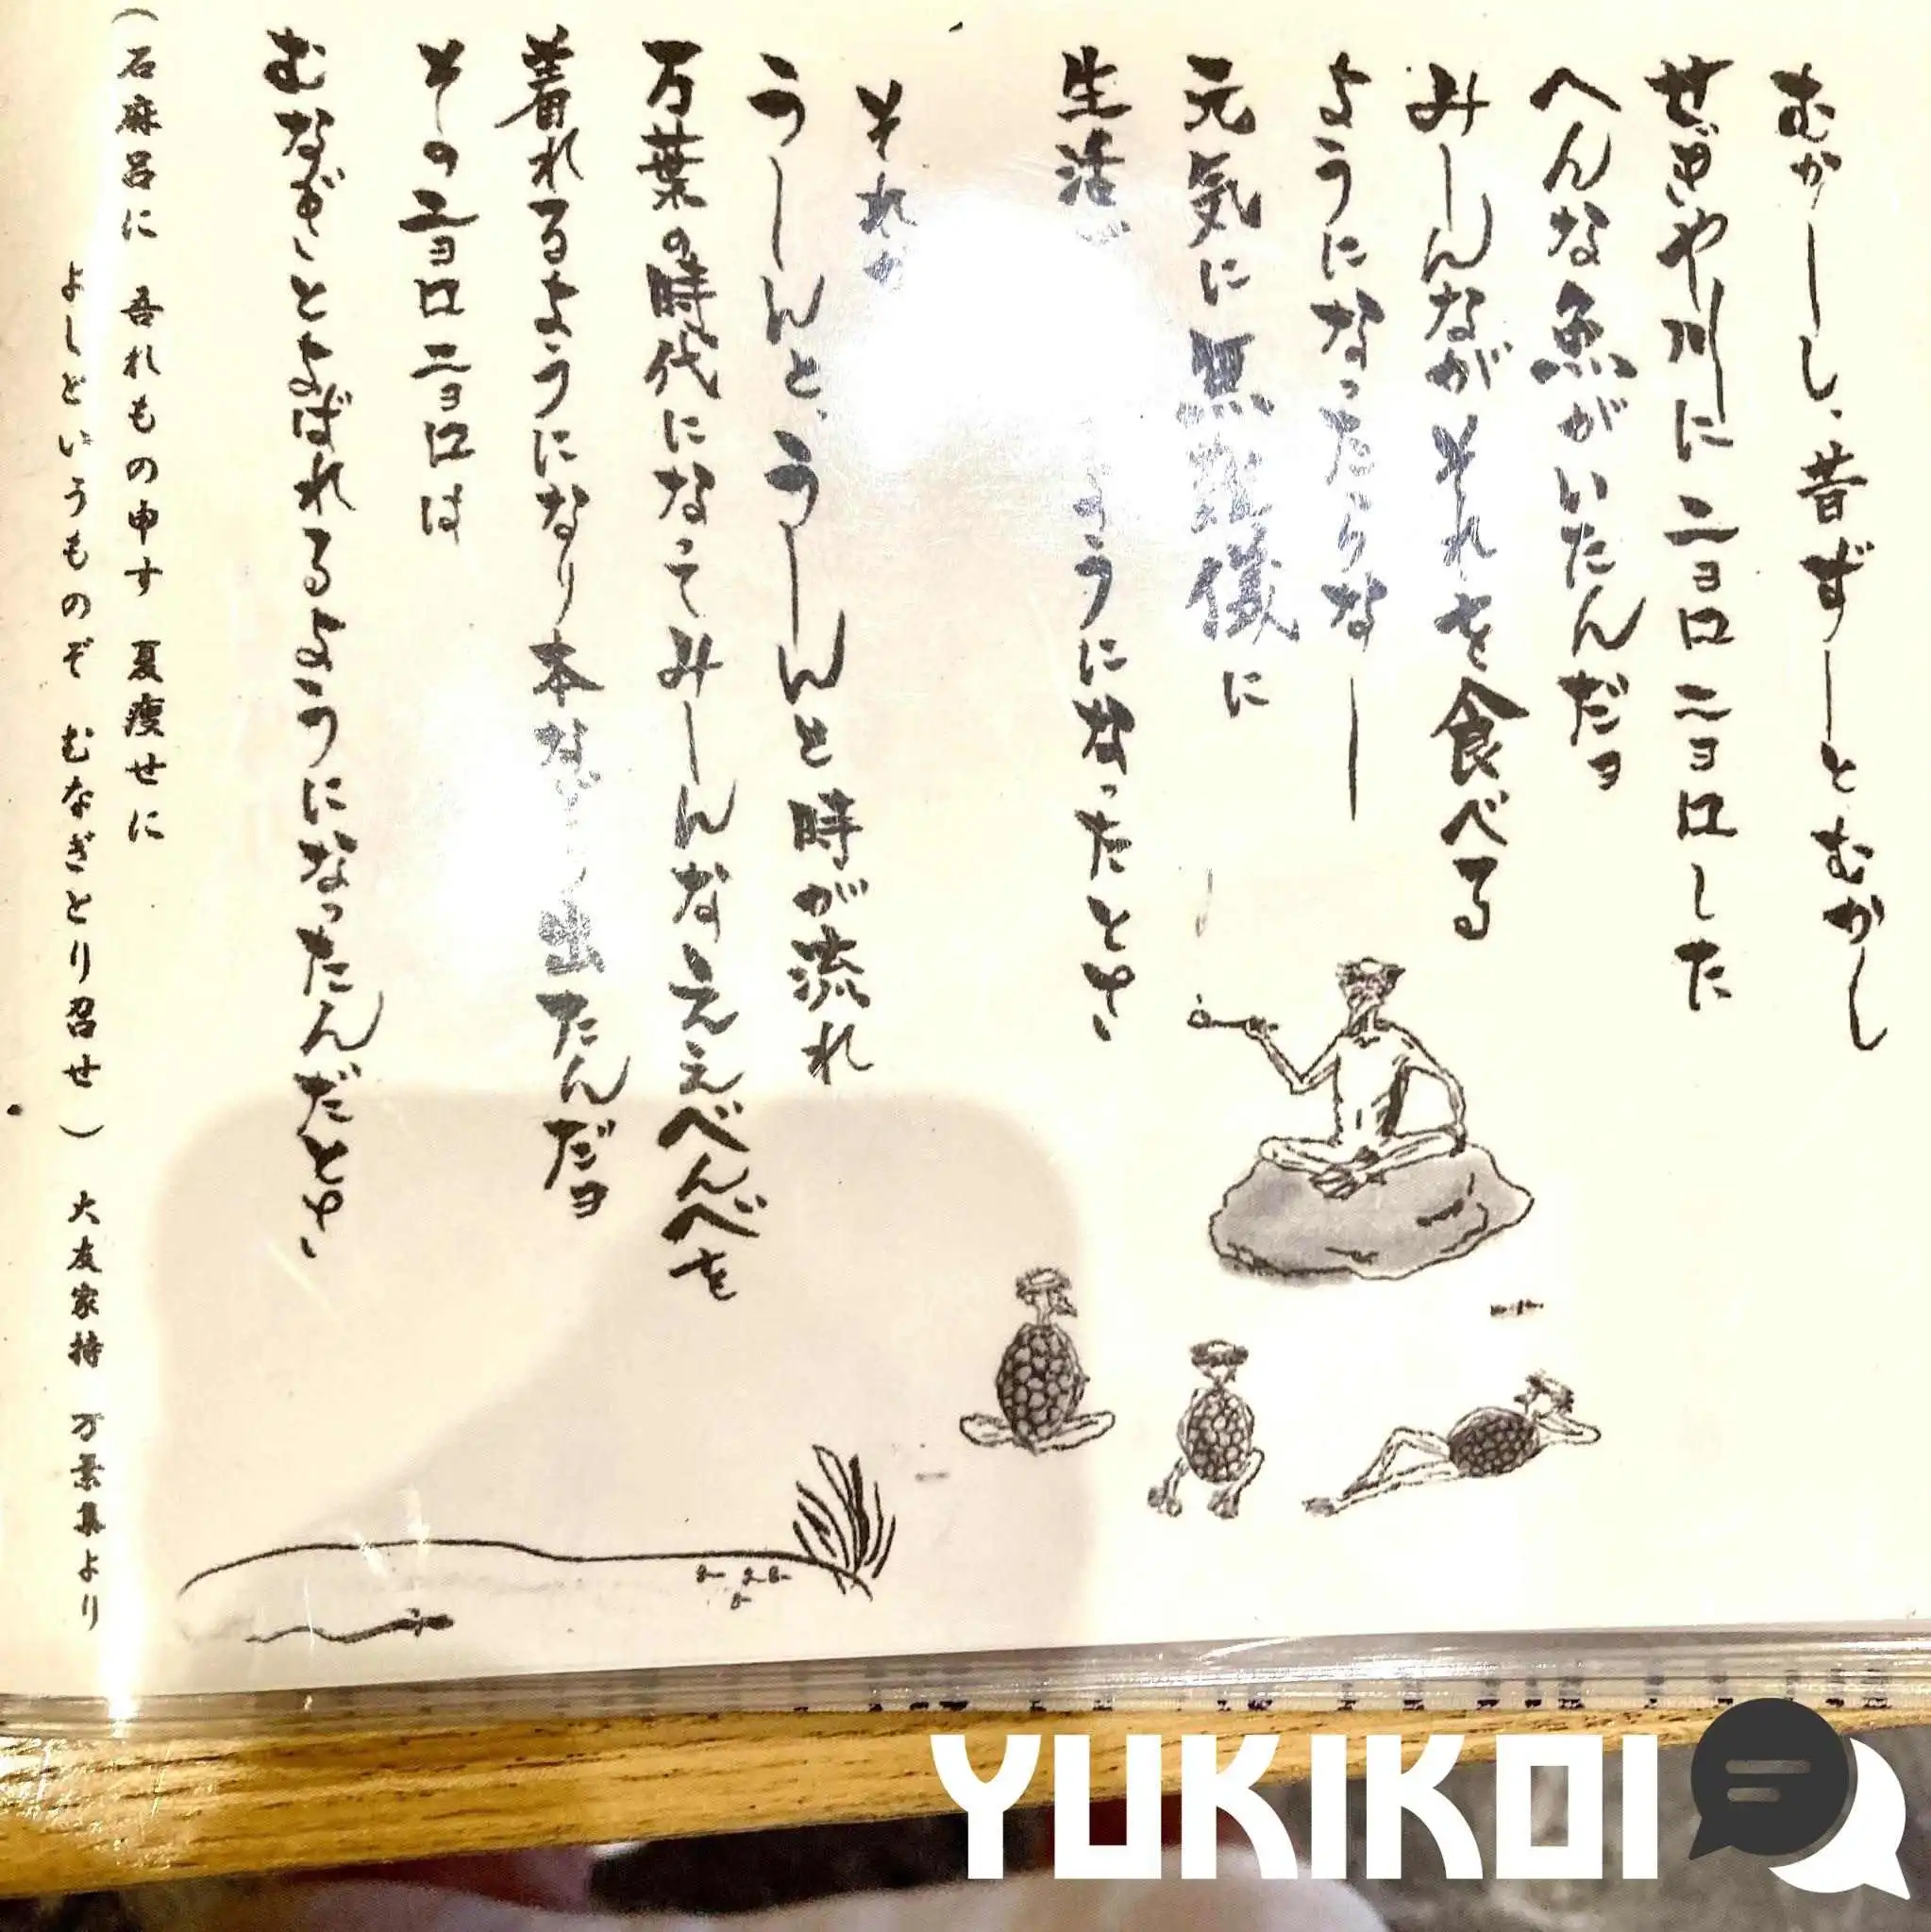 むかーしし、昔ずーーとむかし
ぜぎや川にニョロニョロした
へんな魚がいたんだョ
みーんながそれを食べる
ようになったらなー
元気に無 儀に
生活 ようになったとさ
それ
うーんと、うーんと時が流れ
万葉の時代になってみーんなええべんべを
着れるようになり本など 出たんだョ
そのニョロニョロは
むなぎとよばれるようになったんだとさ
(石麻呂に 吾れもの申す 夏痩せに
よしというものぞ むなぎとり召せ) 大友家持 万葉集より
YUKIKOI